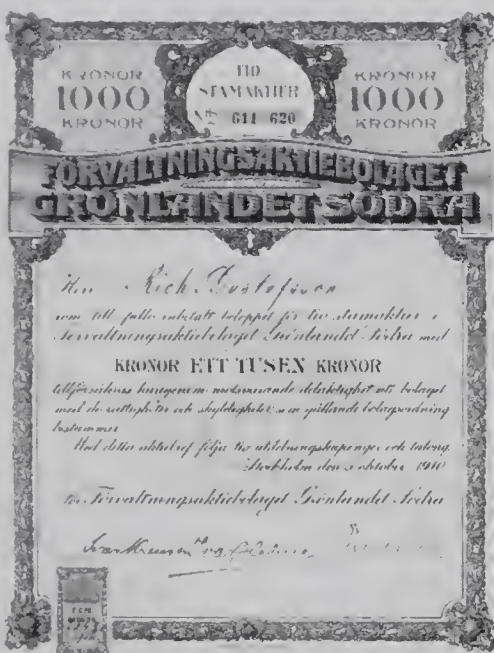 KRONOR
1000
KRONOR
TIO
STAMAKTIER
No 611 620
KRONOR
1000
KRONOR
FÖRVALTNINGSAKTIEBOLAGET
GRÖNLANDET SÖDRA
Herr Rich. Gustafsson
som till fullo inbetalt beloppet för tio stamaktier i
Förvaltningsaktiebolaget Grönlandet Södra med
KRONOR ETT TUSEN KRONOR
tillförsäkras härigenom motsvarande delaktighet uti bolaget
med de rättigheter och skyldigheter, som gällande bolagsordning
bestämmer
Med detta aktiebref följa tio utdelningskuponger och talong.
Stockholm den oktober 1910
för Förvaltningsaktiebolaget Grönlandet Södra